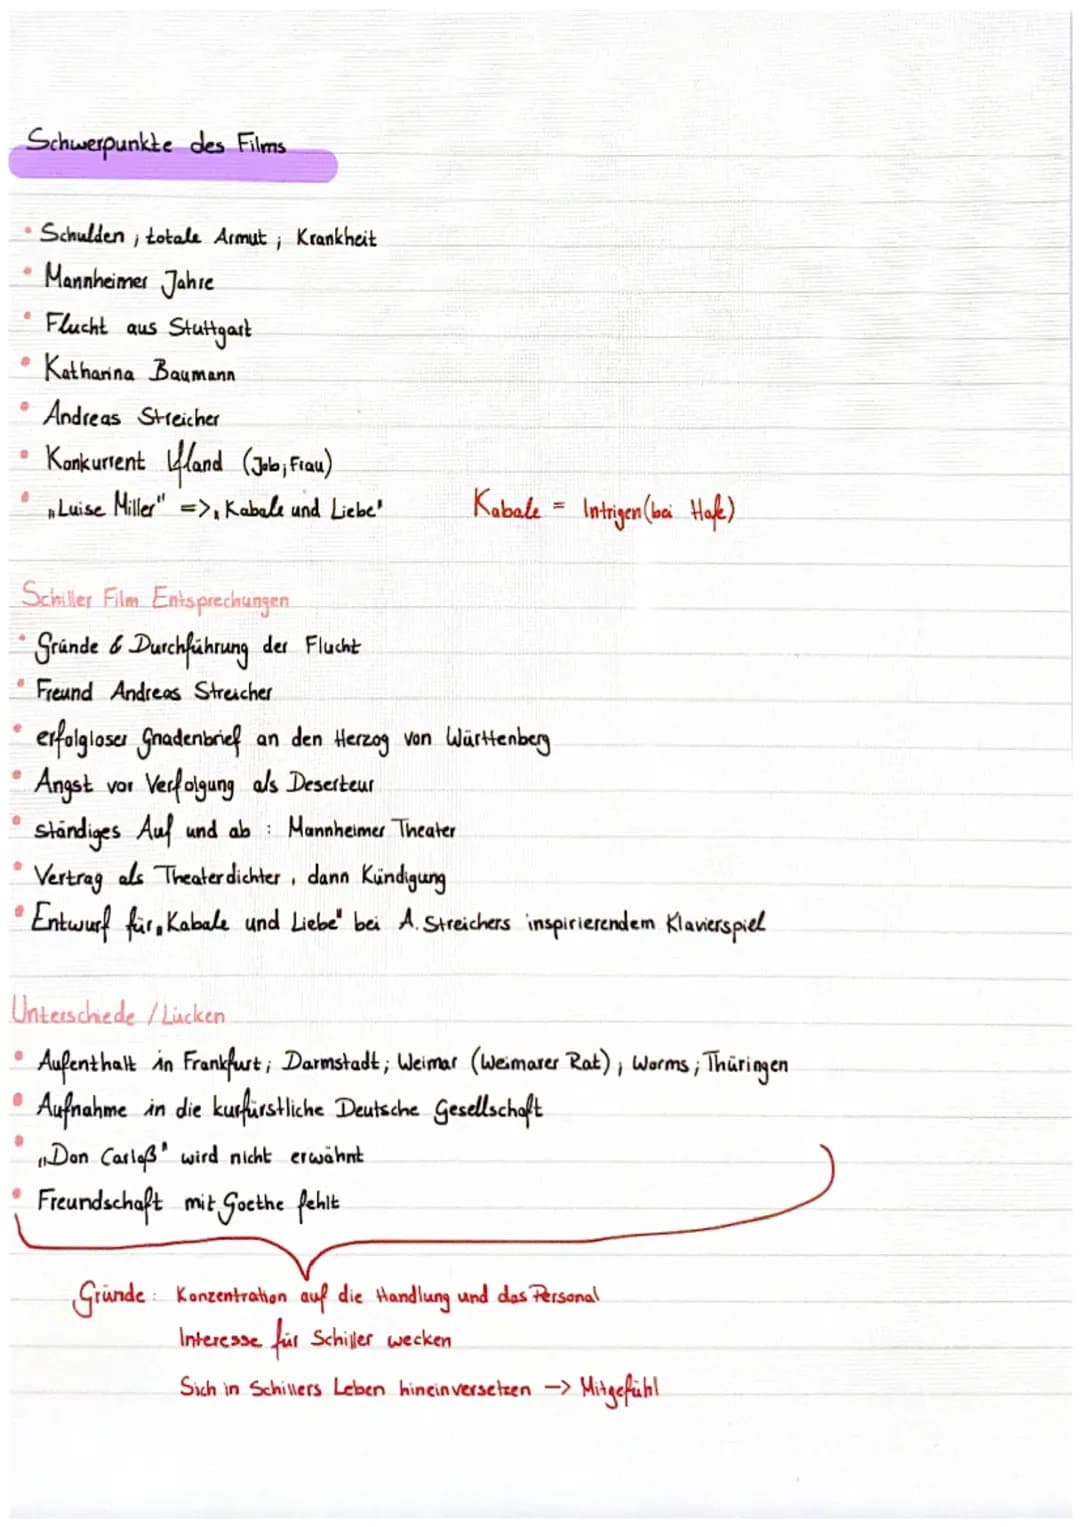 Schwerpunkte des Films
• Schulden ; totale Armut ; Krankheit
• Mannheimer Jahre
• Flucht aus Stuttgart
• Katharina Baumann
• Andreas Streicher
• Konkurrent Iffland (Job; Frau)
• „Luise Miller" => „Kabale und Liebe" Kabale = Intrigen (bei Hofe)
Schiller Film Entsprechungen
• Gründe & Durchführung der Flucht
• Freund Andreas Streicher
• erfolgloser Gnadenbrief an den Herzog von Württenberg
• Angst vor Verfolgung als Deserteur
• ständiges Auf und ab : Mannheimer Theater
• Vertrag als Theaterdichter , dann Kündigung
• Entwurf für „Kabale und Liebe" bei A. Streichers inspirierendem Klavierspiel
Unterschiede / Lücken
• Aufenthalt in Frankfurt ; Darmstadt ; Weimar (Weimarer Rat) ; Worms ; Thüringen
• Aufnahme in die kurfürstliche Deutsche Gesellschaft
• „Don Carloß" wird nicht erwähnt
• Freundschaft mit Goethe fehlt
Gründe : Konzentration auf die Handlung und das Personal
Interesse für Schiller wecken
Sich in Schillers Leben hineinversetzen -> Mitgefühl